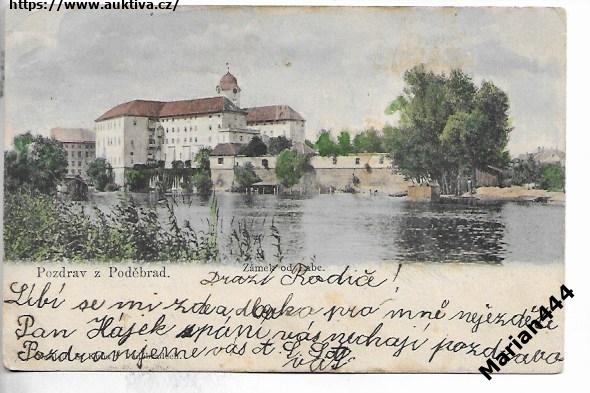 https://www.auktiva.cz/
Pozdrav z Poděbrad.
Zámek od Labe.
Drazí Rodiče!
Líbí se mi zde a dlouho pro mně nejezdětě
Pan Hájek spaní vás nechají pozdravo
Pozdravujeme vás
Marian444